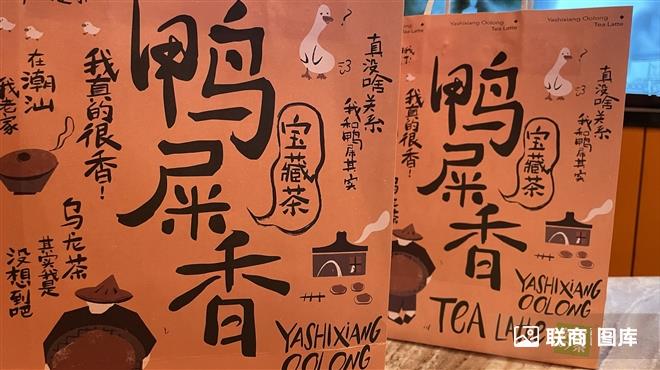 在潮汕
我老家
我真的很香！
鸭屎香
宝藏茶
真没啥关系
我和鸭屎其实
乌龙茶
其实我是
没想到吧
YASHIXIANG
OOLONG
Yashixiang Oolong
Tea Latte
我真的很香！
鸭屎香
宝藏茶
真没啥关系
我和鸭屎其实
YASHIXIANG
OOLONG
TEA LATTE
茶
联商图库